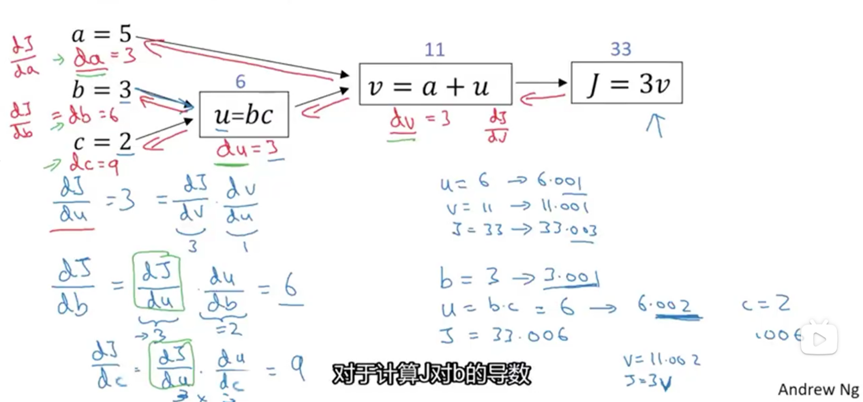 a = 5
11
33
dJ/da → da = 3
6
v = a + u
J = 3v
b = 3
dJ/db = db = 6
u=bc
dv = 3 dJ/dv
c = 2
du = 3
→ dc = 9
dJ/du = 3 = dJ/dv · dv/du
3 1
u = 6 → 6.001
v = 11 → 11.001
J = 33 → 33.003
dJ/db = dJ/du · du/db = 6
→3 =2
b = 3 → 3.001
u = b·c = 6 → 6.002 c = 2
J = 33.006 .006
dJ/dc = dJ/du · du/dc = 9
3 × 3
v = 11.002
J = 3v
对于计算J对b的导数
Andrew Ng